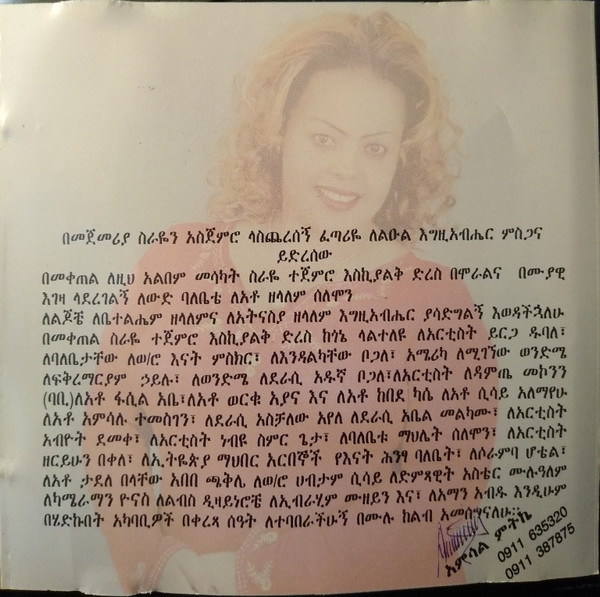 በመጀመሪያ ስራዬን አስጀምሮ ላስጨረሰኝ ፈጣሪዬ ለልዑል እግዚአብሔር ምስጋና
ይድረሰው
በመቀጠል ለዚህ አልበም መሳካት ስራዬ ተጀምሮ እስኪያልቅ ድረስ በሞራልና በሙያዊ
እገዛ ላደረገልኝ ለውድ ባለቤቴ ለአቶ ዘላለም ሰለሞን
ለልጆቼ ለቤተልሔም ዘላለምና ለአትናስያ ዘላለም እግዚአብሔር ያሳድግልኝ እወዳችኋለሁ
በመቀጠል ስራዬ ተጀምሮ እስኪያልቅ ድረስ ከጎኔ ላልተለዩ ለአርቲስት ይርጋ ዱባለ፣
ለባለቤታቸው ለወ/ሮ እናት ምስክር፣ ለእንዳልካቸው ቦጋለ፣ አሜሪካ ለሚገኘው ወንድሜ
ለፍቅረማርያም ኃይሉ፣ ለወንድሜ ለደራሲ አዱኛ ቦጋለ፣ለአርቲስት ለዳምጤ መኮንን
(ባቢ)ለአቶ ፋሲል አቤ፣ለአቶ ወርቁ አያና እና ለአቶ ከበደ ካሴ ለአቶ ሲሳይ አለማየሁ
ለአቶ አምሳሉ ተመስገን፣ ለደራሲ አስቻለው አየለ ለደራሲ አቤል መልካሙ፣ ለአርቲስት
አብዮት ደመቀ፣ ለአርቲስት ነብዩ ስምር ጌታ፣ ለባለቤቱ ማህሌት ሰለሞን፣ ለአርቲስት
ዘርይሁን በቀለ፣ ለኢትዬጵያ ማህበር አርበኞች የእናት ሕንፃ ባለቤት፣ ለሶራምባ ሆቴል፣
ለአቶ ታደለ በላቸው አበበ ጫቅሌ ለወ/ሮ ሀብታም ሲሳይ ለድምፃዊት አስቴር ሙሉዓለም
ለካሜራማን ዮናስ ለልብስ ዲዛይነሮቼ ለኢብራሂም ሙዘይን እና፣ ለአማን አብዱ እንዲሁም
በሄድኩበት አካባቢዎች በቀረጻ ሰዓት ለተባበራችሁኝ በሙሉ ከልብ አመሰግናለሁ፡፡
አምሳል ምትኬ
0911 635320
0911 387875